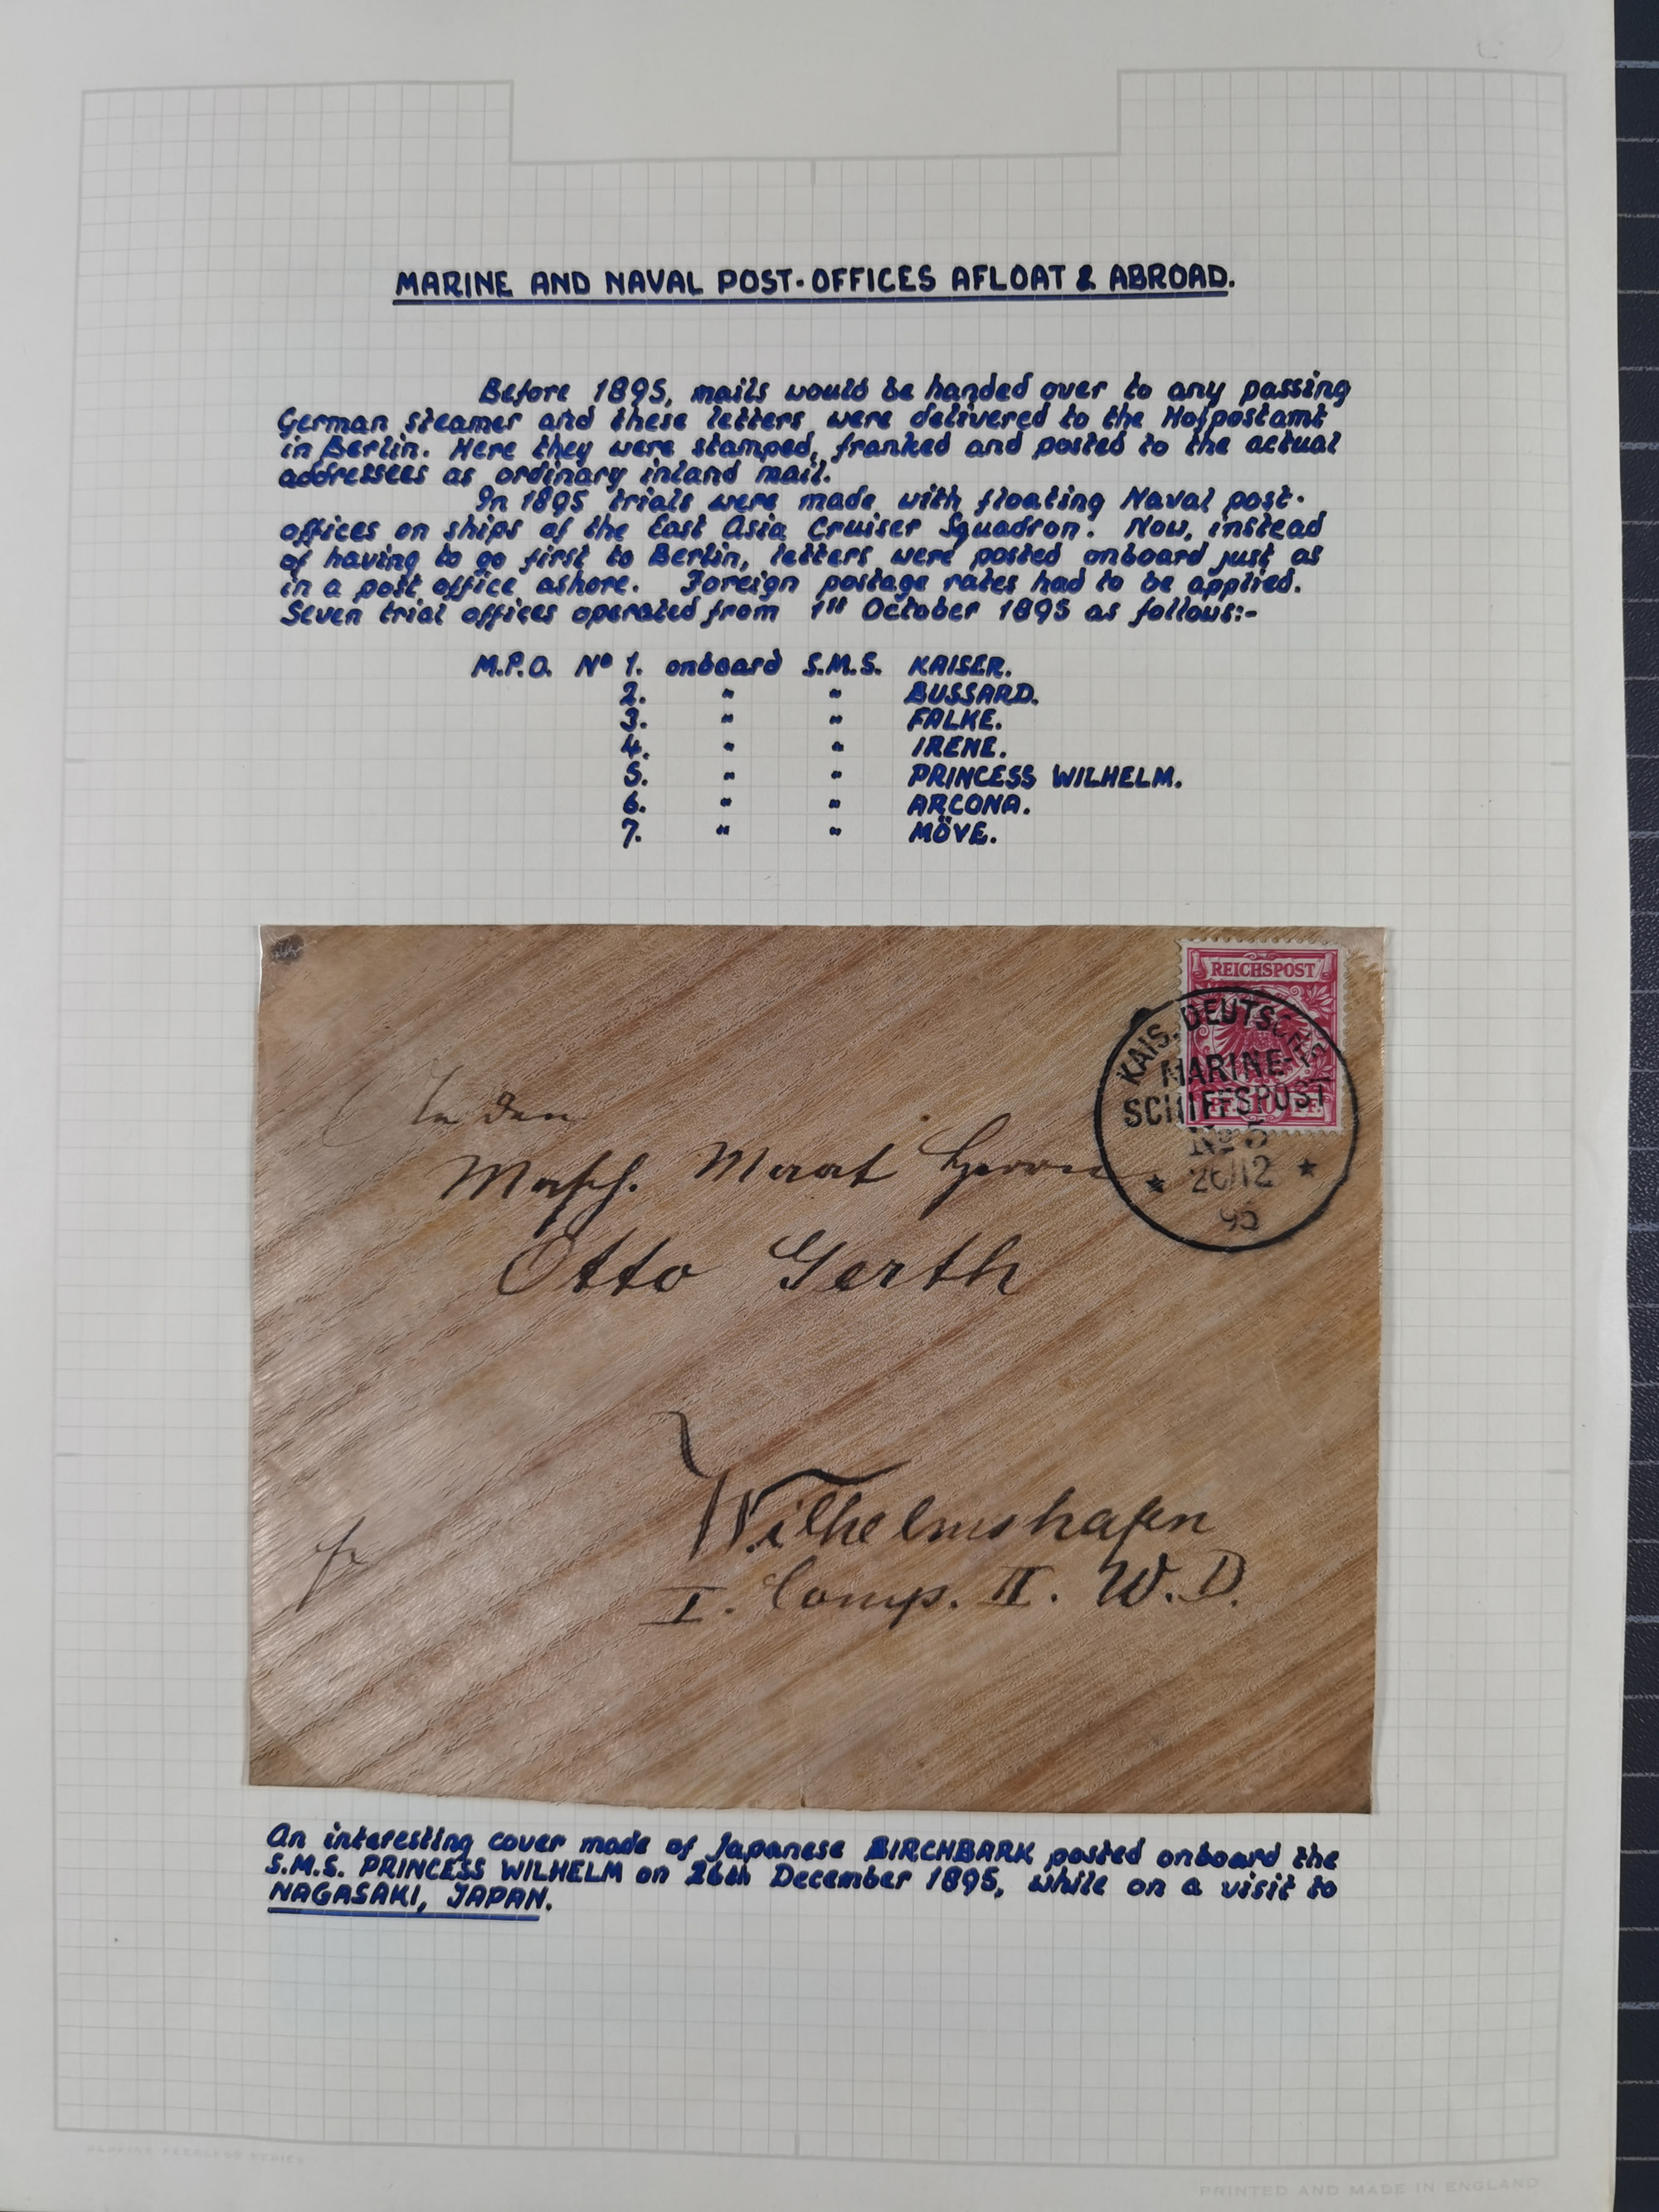 MARINE AND NAVAL POST-OFFICES AFLOAT & ABROAD.
Before 1895, mails would be handed over to any passing
German steamer and these letters were delivered to the Hofpostamt
in Berlin. Here they were stamped, franked and posted to the actual
addressees as ordinary inland mail.
In 1895 trials were made with floating Naval post-
offices on ships of the East Asia Cruiser Squadron. Now, instead
of having to go first to Berlin, letters were posted onboard just as
in a post office ashore. Foreign postage rates had to be applied.
Seven trial offices operated from 1st October 1895 as follows:-
M.P.O. Nº 1. onboard S.M.S. KAISER.
2. " " BUSSARD.
3. " " FALKE.
4. " " IRENE.
5. " " PRINCESS WILHELM.
6. " " ARCONA.
7. " " MÖVE.
REICHSPOST
KAIS. DEUTSCHE
MARINE-
SCHIFFSPOST
No 5
26/12
95
An den
Masch. Maat Herrn
Otto Gerth
Wilhelmshafen
I. Comp. II. W. D.
An interesting cover made of Japanese BIRCHBARK posted onboard the
S.M.S. PRINCESS WILHELM on 26th December 1895, while on a visit to
NAGASAKI, JAPAN.
PRINTED AND MADE IN ENGLAND